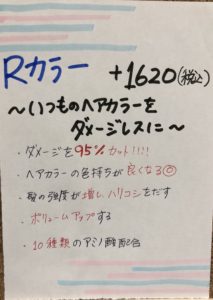 Rカラー +1620(税込)
〜いつものヘアカラーを
ダメージレスに〜
・ダメージを95%カット!!!!
・ヘアカラーの色持ちが良くなる◎
・髪の強度が増し、ハリコシをだす
・ボリュームアップする
・10種類のアミノ酸配合